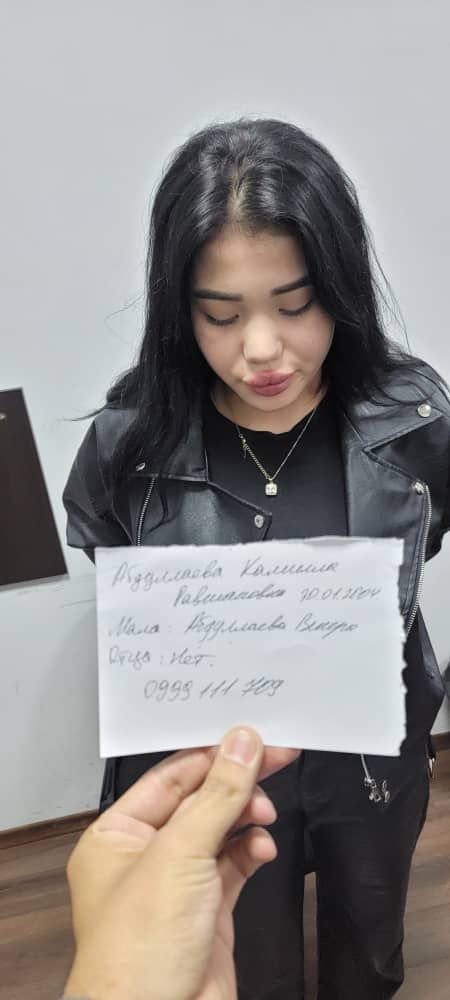 Абдуллаева Камилла
Равшановна 20.01.2004
Мама: Абдуллаева Венера
Отца: Нет.
0999 111 709